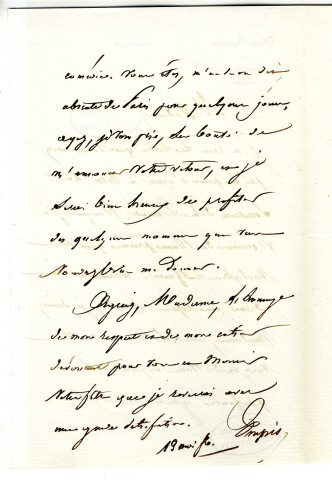 Vous êtes, m'a-t-on dit
absente de Paris pour quelques jours,
ayez, je vous prie, la bonté de
m'annoncer votre retour, et je
serai bien heureux de profiter
des quelques moments que vous
voudrez bien me donner.
Agréez, Madame, l'hommage
de mon respect et de mon entier
dévouement pour vous et Monsieur
votre fils que je reverrai avec
une grande satisfaction.
19 mai